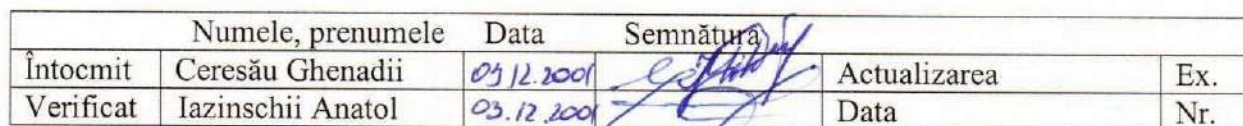 Numele, prenumele Data Semnătura
Întocmit Ceresău Ghenadii 12.2001 Actualizarea Ex.
Verificat Iazinschii Anatol 03.12.2001 Data Nr.